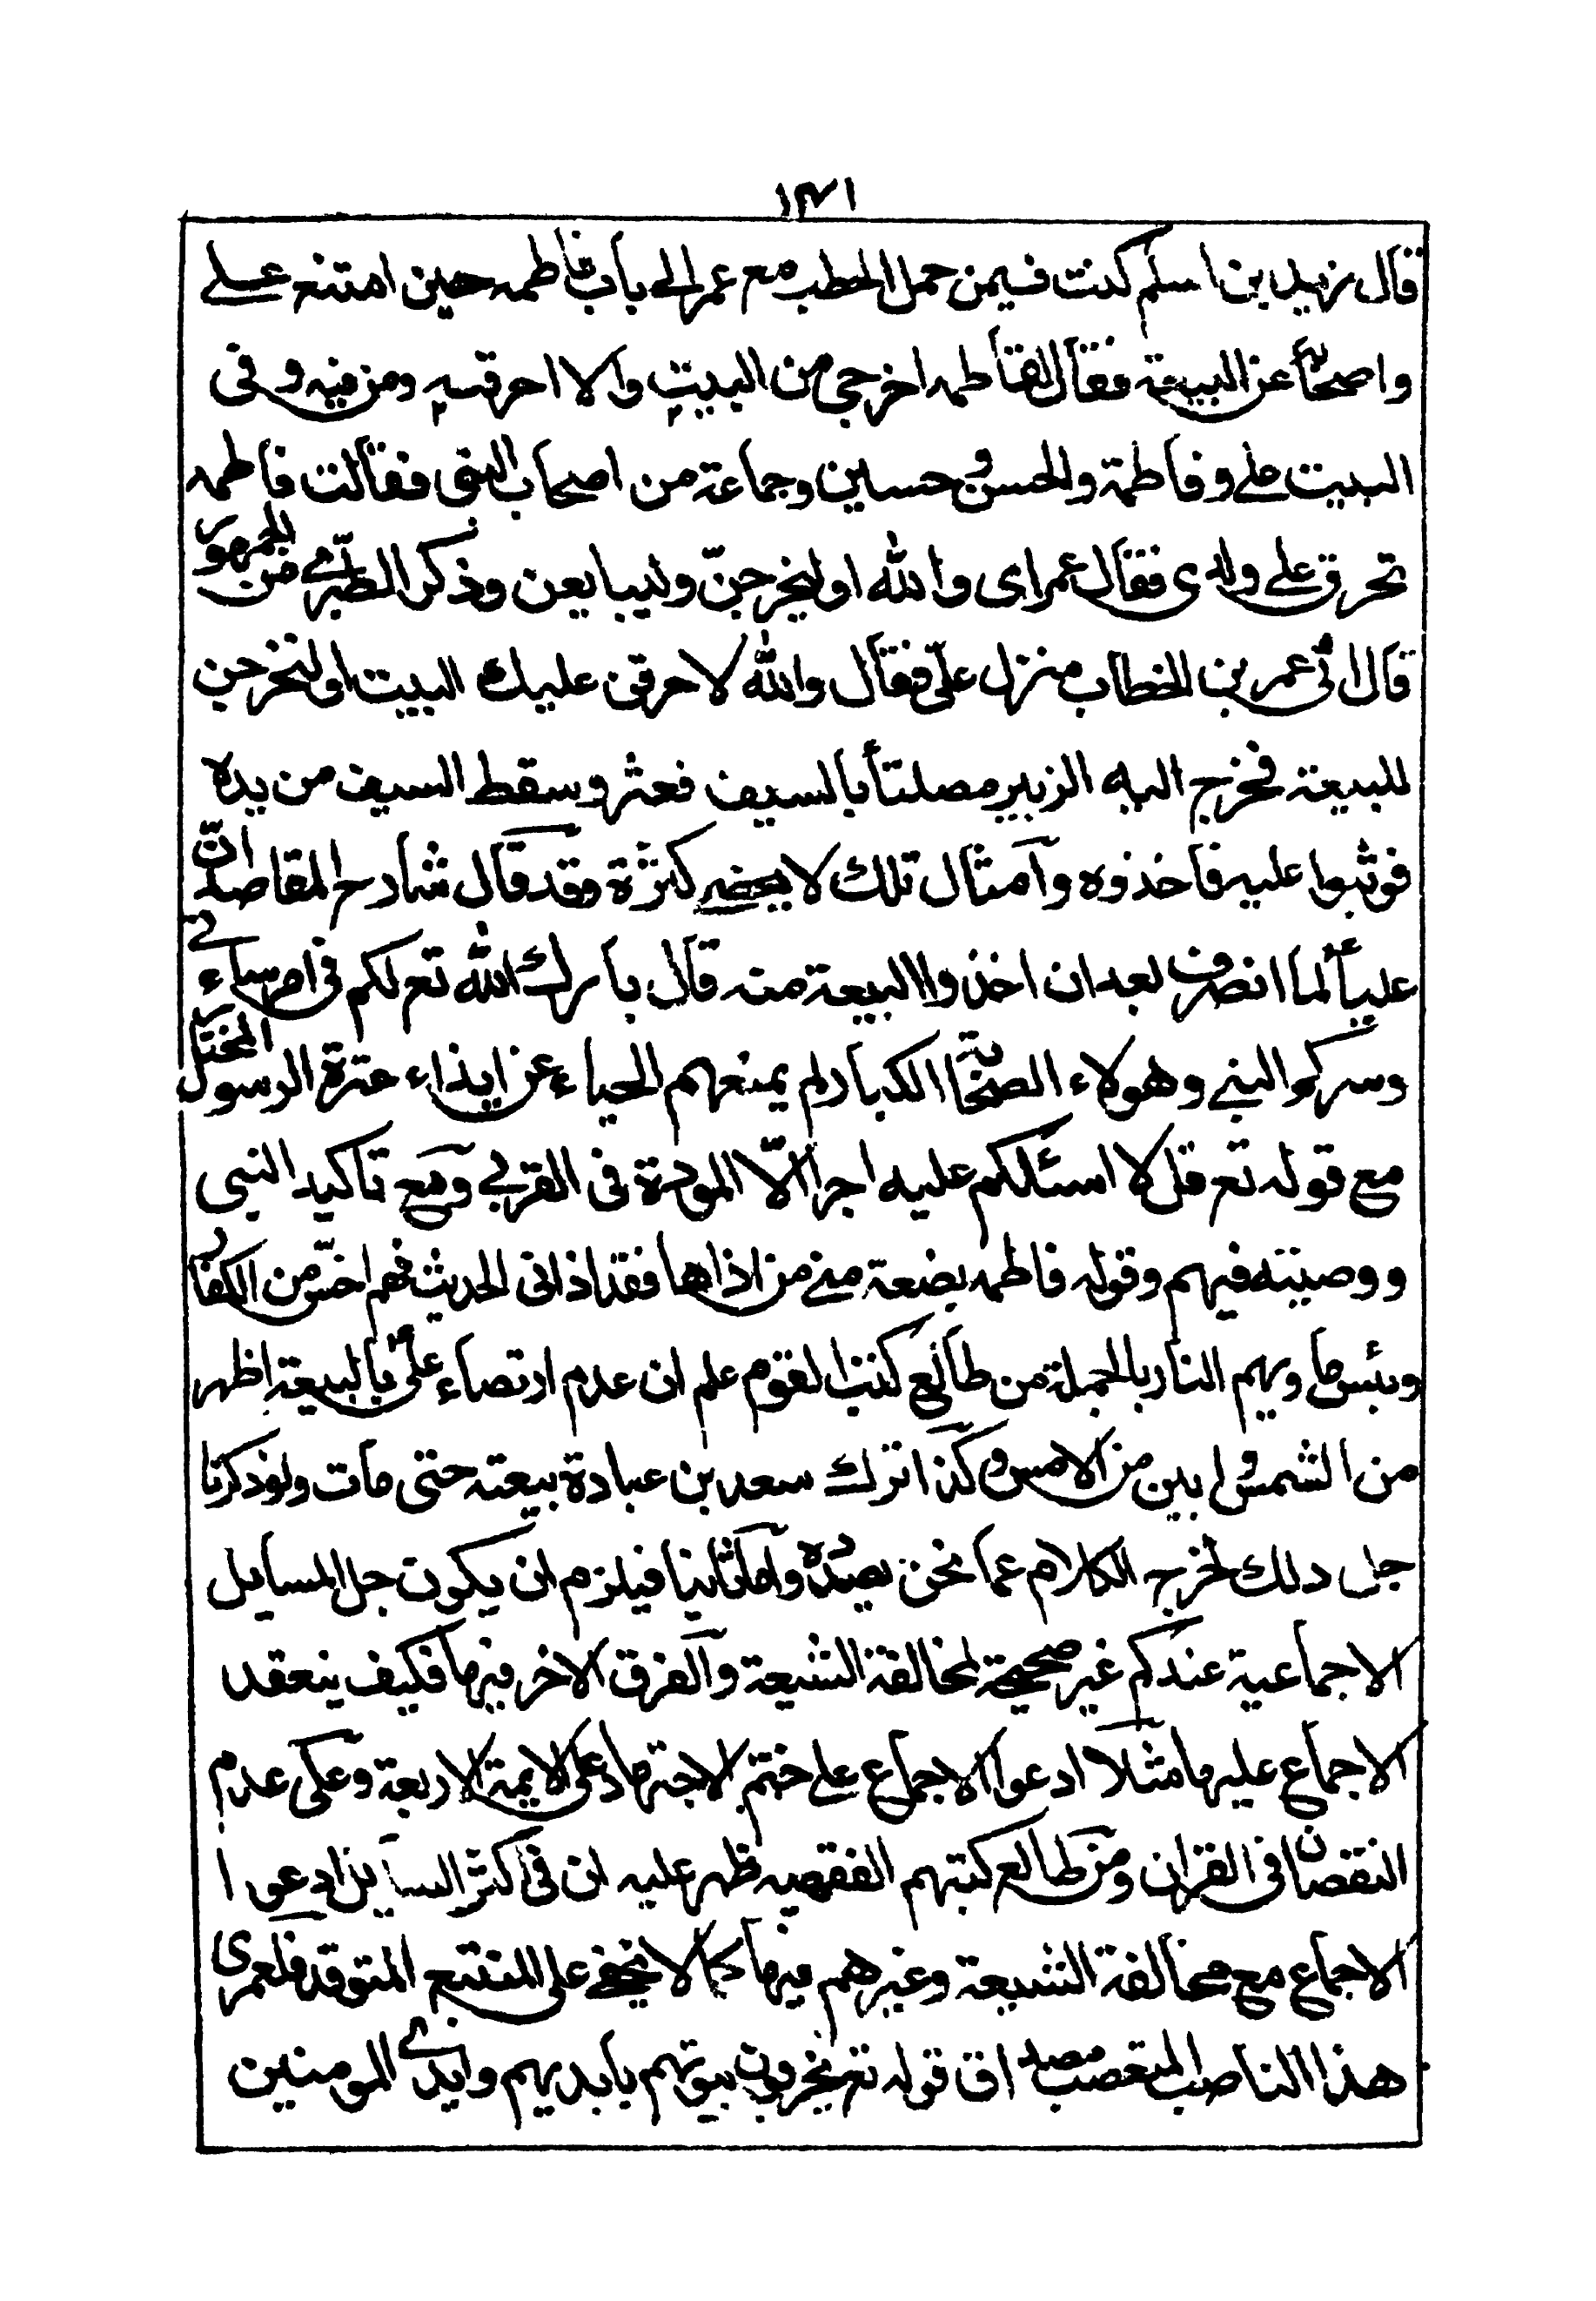 ١٣٧١
قال زيد بن اسلم كنت فيمن حمل الحطب مع عمر الى باب فاطمه حين امتنع على
واصحابه عن البيعة فقال لفاطمه اخرجى من البيت والا احرقته ومن فيه وفى
البيت على وفاطمة والحسن وحسين وجماعة من اصحاب النبى فقالت فاطمه
تحرق على ولدى فقال عمر اى والله او ليخرجنّ وليبايعن وذكر الطبرى من الجمهور
قال اتى عمر بن الخطاب منزل على فقال والله لاحرقن عليك البيت او لتخرجن
للبيعة فخرج اليه الزبير مصلتاً بالسيف فعثر وسقط السيف من يده
فوثبوا عليه فاخذوه وآمثال تلك لا يحصى كثرة وقد قال شارح المقاصد انّ
علياً لما انصرف بعد ان اخذوا البيعة منه قال بارك الله تع لكم فى امر ساءنى
وسركم النبى وهولاء الصحابة الكبار لم يمنعهم الحياء عن ايذاء عترة الرسول المختار
مع قوله تع قل لا اسئلكم عليه اجرا الّا المودة فى القربى ومع تاكيد النبى
ووصيته فيهم وقوله فاطمه بضعة منى من اذاها فقد اذانى الحديث فهم اخسّ من الكفار
وبئس ماويهم النار بالجملة من طالع كتب القوم علم ان عدم ارتضاء على بالبيعة اظهر
من الشمس وابين من الامس وكذا ترك سعد بن عبادة بيعته حتى مات ولو ذكرنا
جل ذلك لخرج الكلام عما نحن بصدده واما ثانيا فيلزم ان يكون جل المسايل
الاجماعية عندكم غير صحيحة لمخالفة الشيعة والفرق الاخر فيها فكيف ينعقد
الاجماع عليها مثلا ادعوا الاجماع على ختم الاجتهاد على الايمة الاربعة وعلى عدم
النقصان فى القران ومن طالع كتبهم الفقهيه ظهر عليه ان فى اكثر المسايل ادعوا
الاجماع مع مخالفة الشيعة وغيرهم فيها كما لا يخفى على المتتبع المتوقد فلعمرى
هذا الناصب المتعصب مصداق قوله تع يخربون بيوتهم بايديهم وايدى المومنين